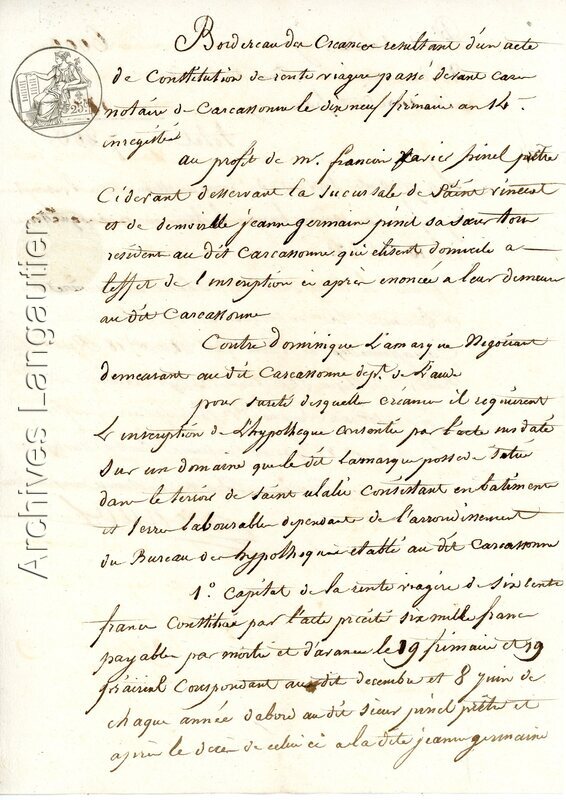 Bordereau des Creances resultant d'un acte
de Constitution de rente viagere passé devant
notaire de Carcassonne le dix neuf frimaire an 14
inregistré
au profit de m. francois Xavier pinel prêtre
Ci devant desservant la sucursale de Saint vincent
et de demoiselle jeanne germaine pinel sa sœur tous
resident au dit Carcassonne qui elisent domicile a
l'effet de l'inscription ci après enoncée a leur demeure
au dit Carcassonne
Contre Dominique Lamarque Negotiant
demeurant au dit Carcassonne dept. de L'aude
pour sureté desquelles creances il requierent
L'inscription de L'hypotheque consentie par l'acte sus daté
Sur un domaine que le dit Lamarque possede situé
dans le teroir de Saint ulalie Consistant en batiments
et terres labourables dependant de l'arrondissement
du Bureau des hypotheques etabli au dit Carcassonne
1.° Capital de la rente viagère de six cents
francs Constituée par l'acte précité six mille francs
payables par moitié et d'avance le 19 frimaire et 19
prairial Corespondant au dit decembre et 8 juin de
chaque année d'abord au dit sieur pinel prêtre et
après le décès de celui ci a la dite jeanne germaine
Archives Langautier